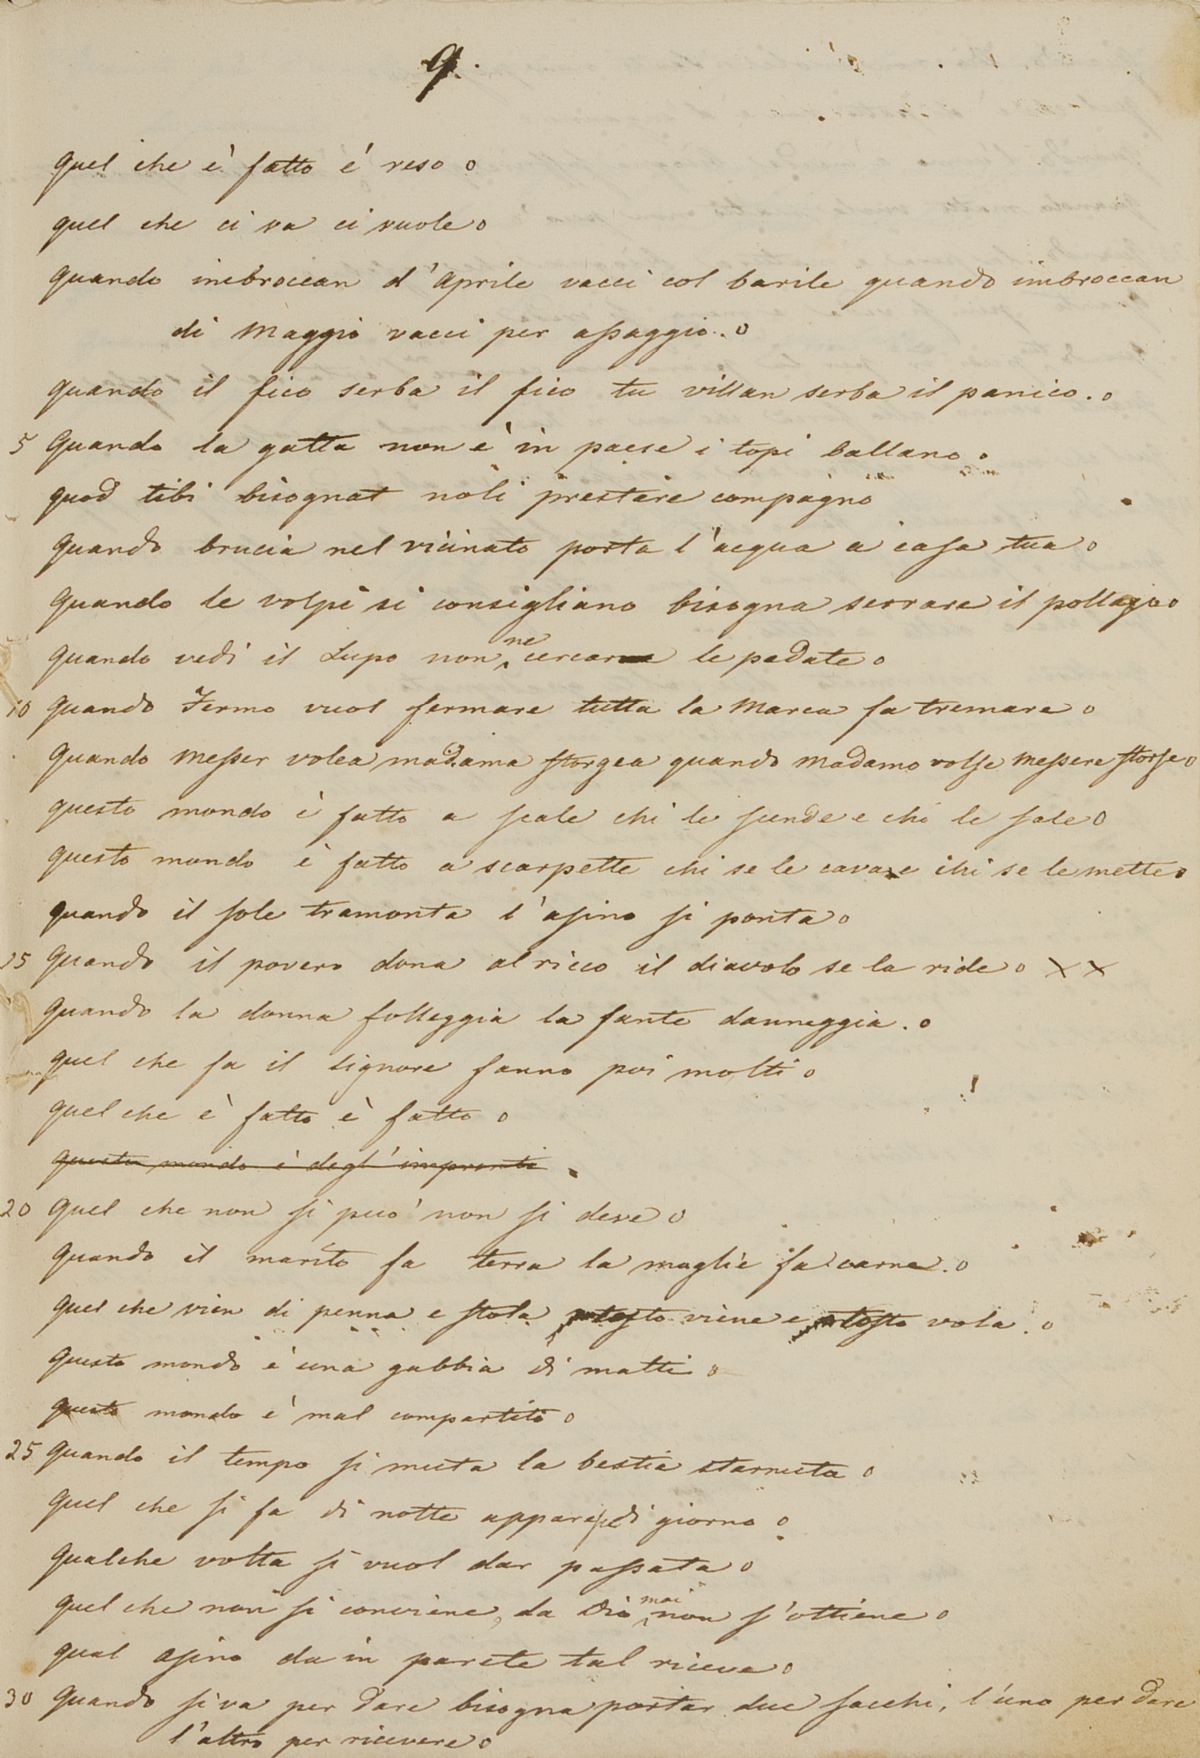 Q.
Quel che è fatto é reso o
quel che ci va ci vuole o
Quando imbroccan d'Aprile vacci col barile quando imbroccan
di Maggio vacci per assaggio. o
Quando il fico serba il fico tu villan serba il panico. o
5 Quando la gatta non è in paese i topi ballano.
quod tibi bisognat noli prestare compagno
Quando brucia nel vicinato porta l'acqua a casa tua o
Quando le volpi si consigliano bisogna serrare il pollajo o
Quando vedi il Lupo non ne cercar le pedate o
10 Quando Fermo vuol fermare tutta la Marca fa tremare o
Quando Messer volea madama storgea quando Madama volse Messere storse o
questo mondo è fatto a scale chi le scende e chi le sale o
questo mondo è fatto a scarpette chi se le cava e chi se le mette o
quando il sole tramonta l'asino si ponta o
15 Quando il povero dona al ricco il diavolo se la ride o X X
Quando la donna folleggia la fante danneggia. o
Quel che fa il Signore fanno poi molti o
quel che è fatto è fatto o
questo mondo è degl'impronti
20 Quel che non si puo' non si deve o
Quando il marito fa terra la moglie fa carne. o
Quel che vien di penna e stola tosto viene e tosto vola. o
Questo mondo è una gabbia di matti o
questo mondo è mal compartito o
25 Quando il tempo si muta la bestia starnuta o
Quel che si fa di notte appare di giorno o
Qualche volta si vuol dar passata o
Quel che non si conviene, da Dio mai non s'ottiene o
Qual asino da in parete tal riceve o
30 Quando si va per dare bisogna portar due sacchi, l'uno per dare
l'altro per ricevere o